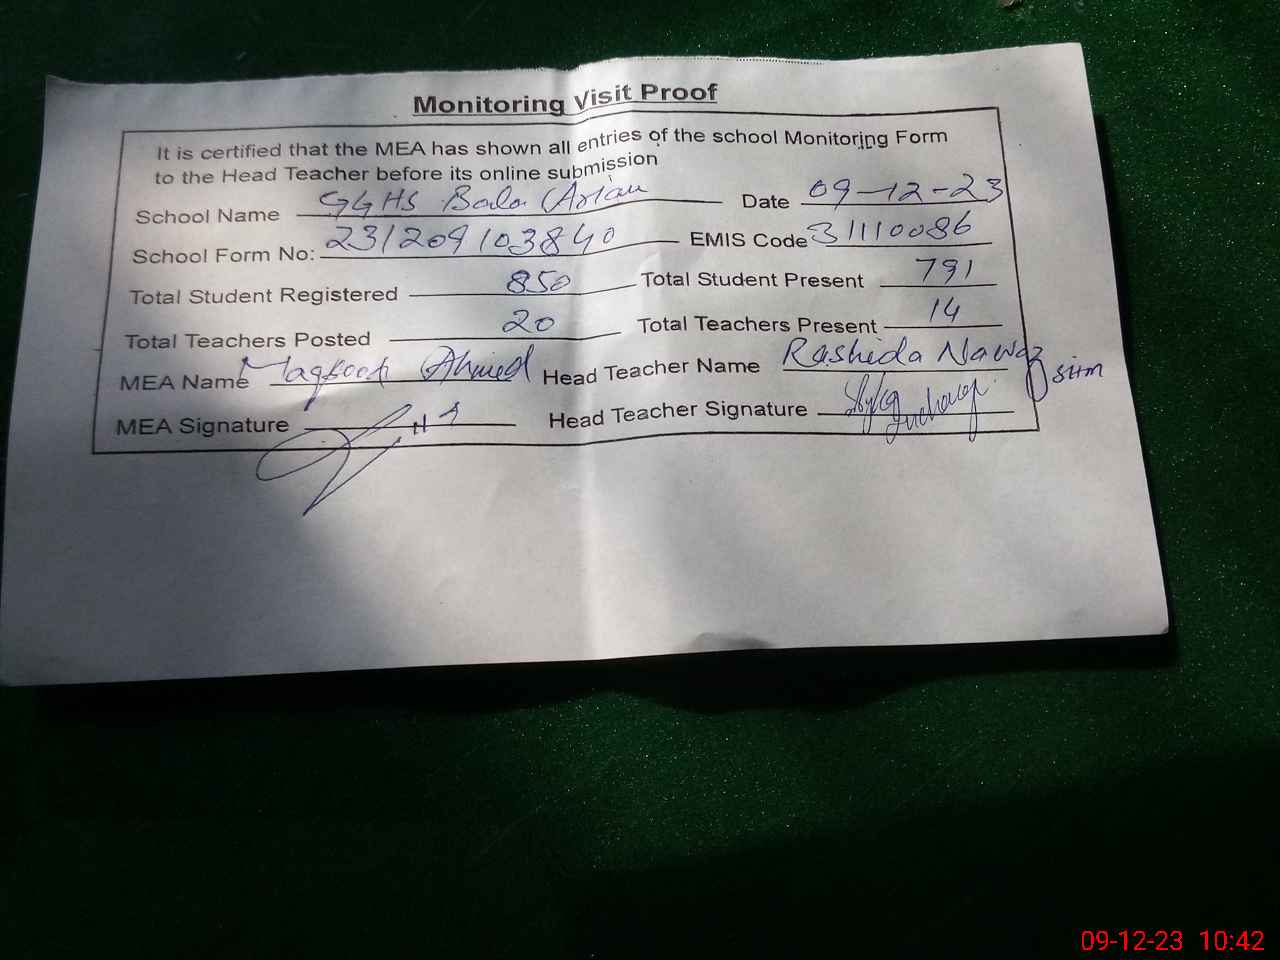 Monitoring Visit Proof
It is certified that the MEA has shown all entries of the school Monitoring Form
to the Head Teacher before its online submission
School Name GGHS Bala Arian Date 09-12-23
School Form No: 2312091103840 EMIS Code 31110086
Total Student Registered 850 Total Student Present 791
Total Teachers Posted 20 Total Teachers Present 14
MEA Name Maqsood Ahmed Head Teacher Name Rashida Nawaz
SHM
MEA Signature Head Teacher Signature Incharge
09-12-23 10:42